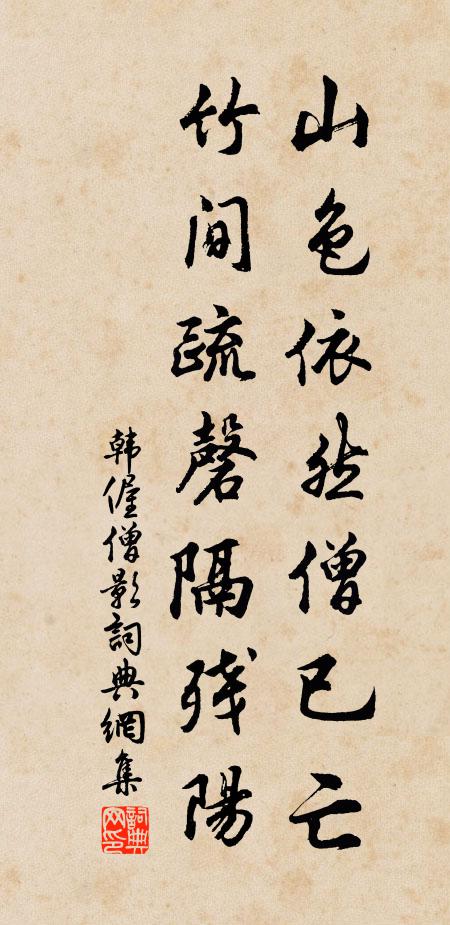 山色依然僧已亡
竹间疏磬隔残陽
韩偓僧影詞典網集
詞典网印